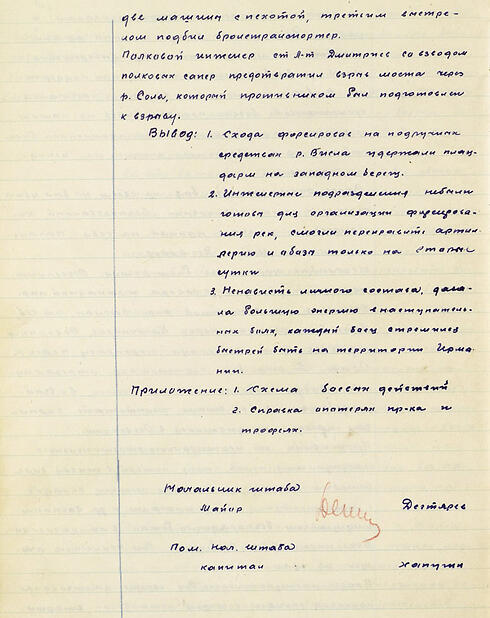 две машины с пехотой, третим выстре-
лом подбил бронетранспортер.
Полковой инженер ст. л-т Дмитриев со взводом
полковых сапер предотвратил взрыв моста через
р. Сола, который противником был подготовлен
к взрыву.
Вывод: 1. Схода форсировав на подручных
средствах р. Висла удержали плац-
дарм на западном берегу.
2. Инженерные подразделения небыли
готовы для организации форсирова-
ния рек, смогли переправить артил-
лерию и обозы только на вторые
сутки
3. Ненависть личного состава, дава-
ла большую энергию в наступатель-
ных боях, каждый боец стремился
быстрей быть на территории Герма-
нии.
Приложение: 1. Схема боевых действий
2. Справка опотерях пр-ка и
трофеях.
Начальник штаба
Майор Дегтярев
Пом. Нач. штаба
капитан